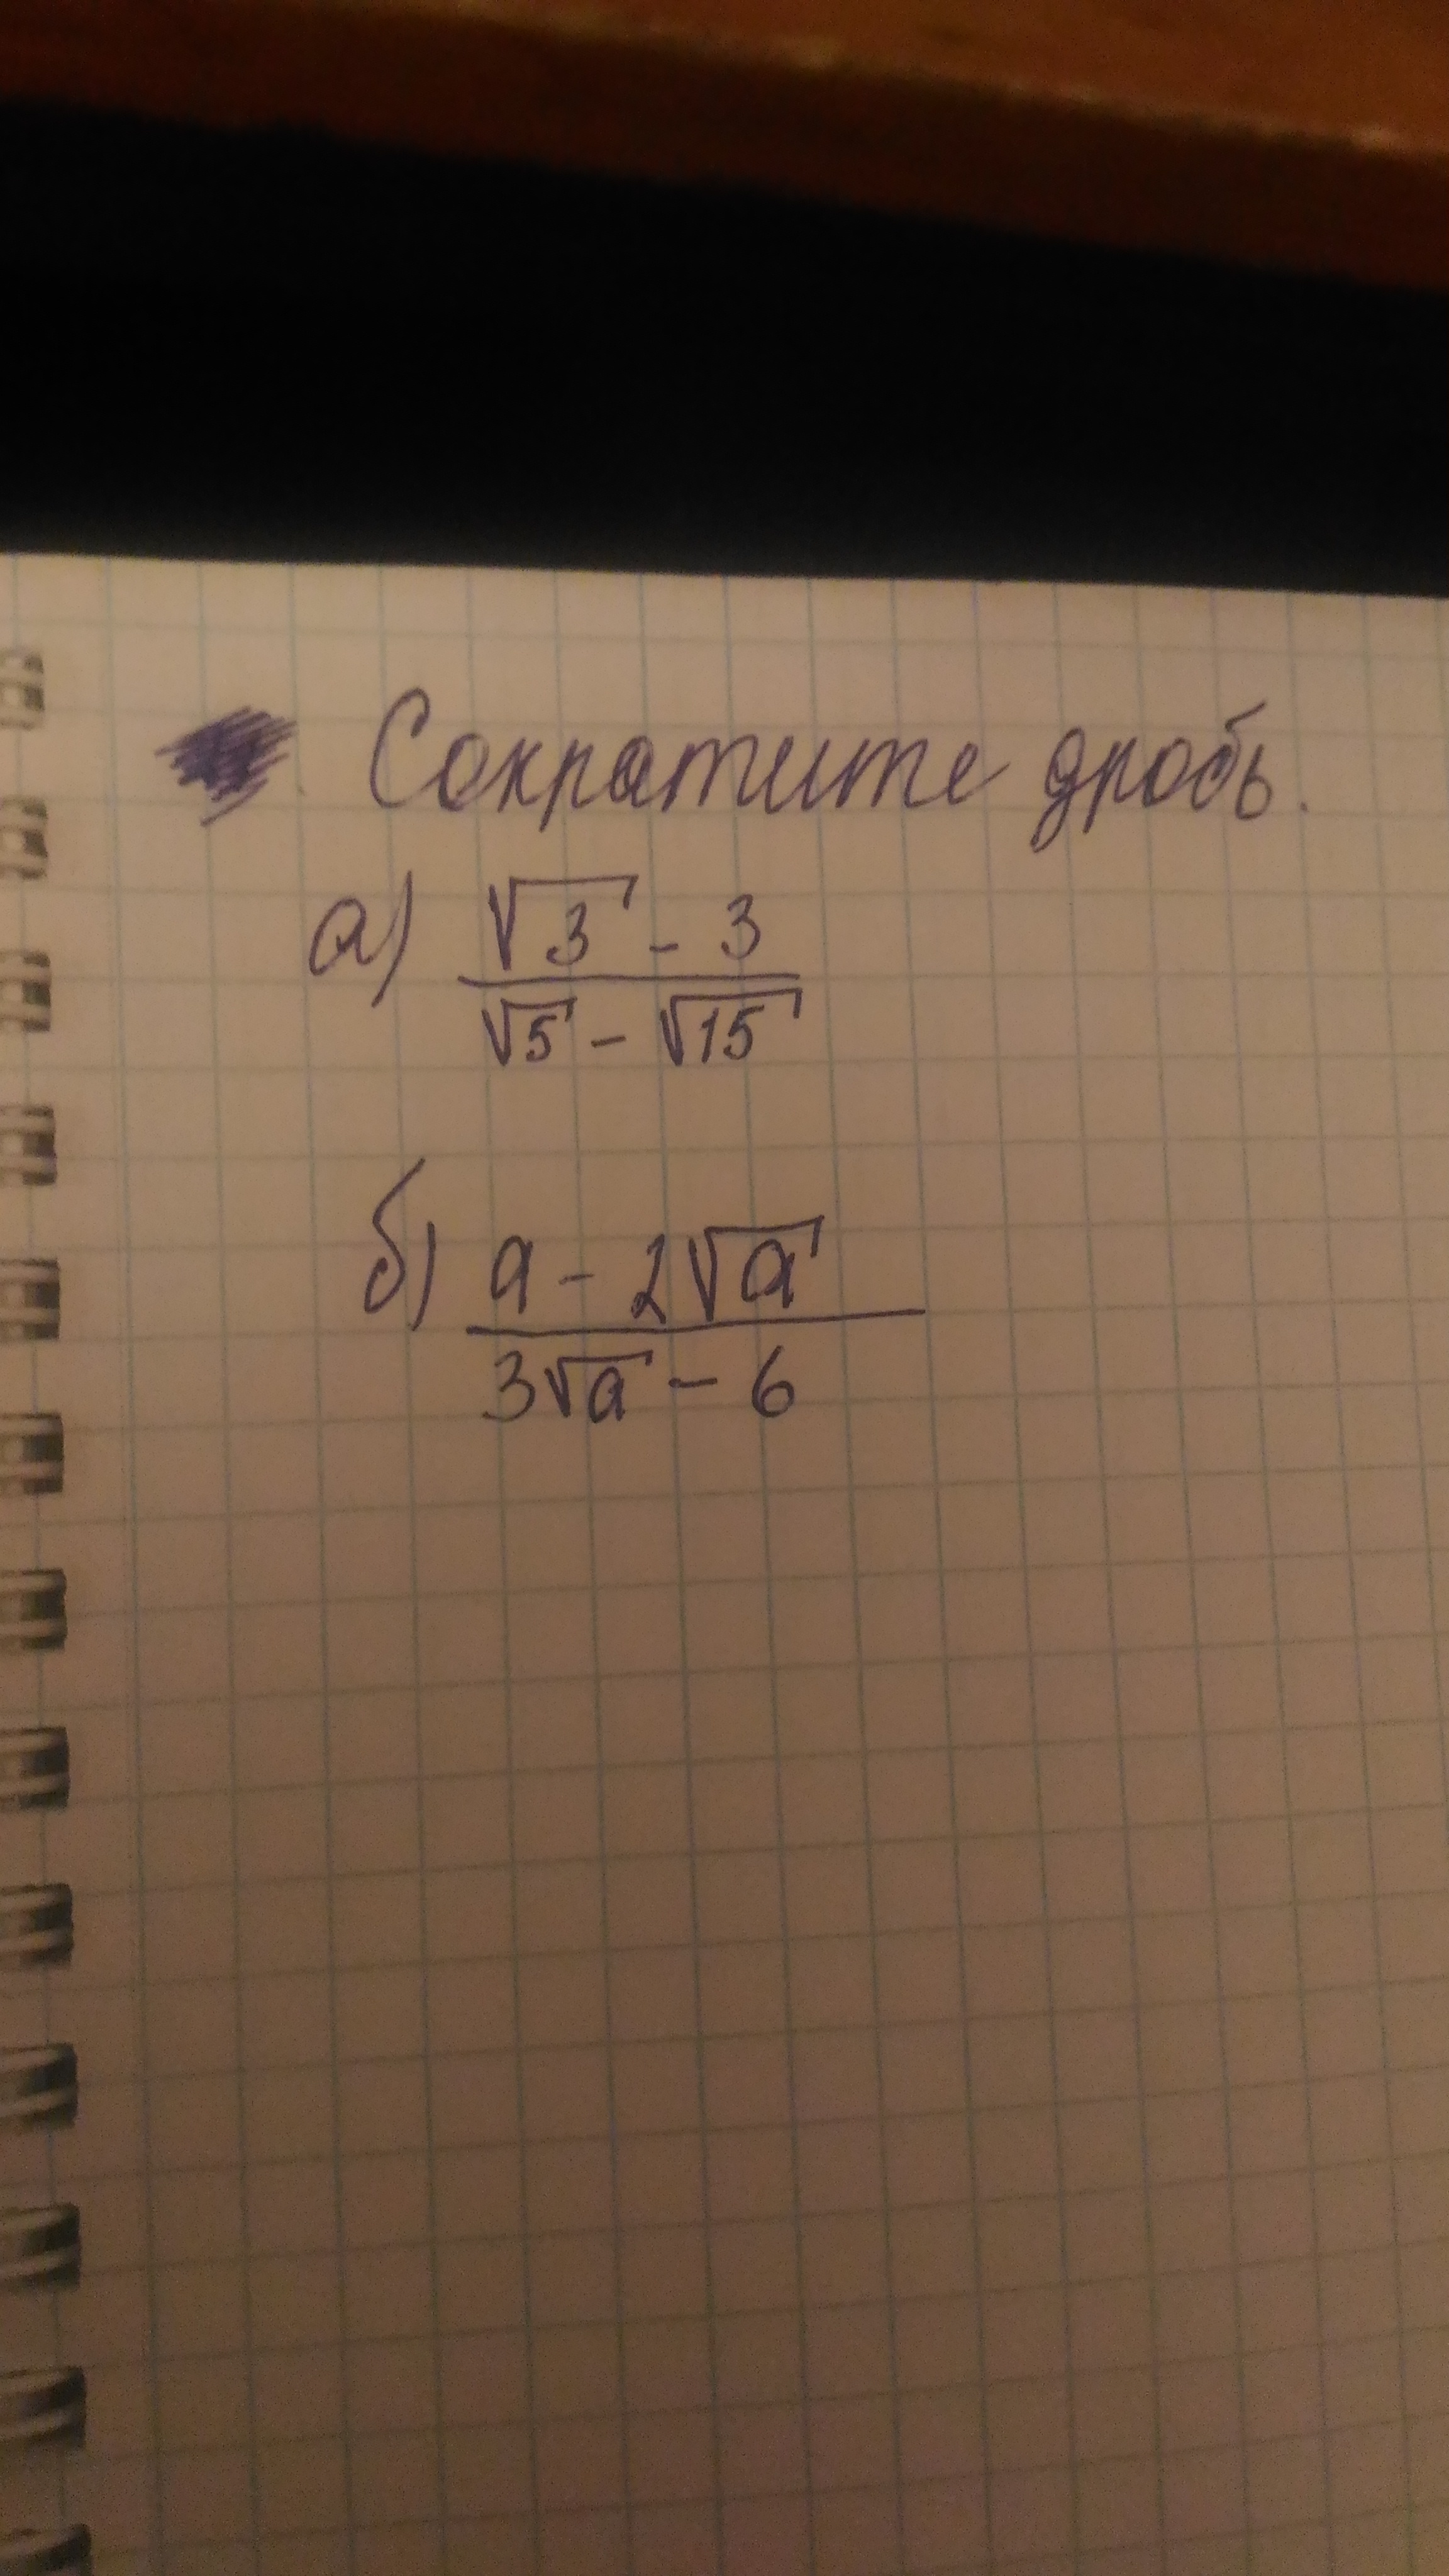 Сократите дробь.
а) (√3 - 3) / (√5 - √15)
б) (a - 2√a) / (3√a - 6)